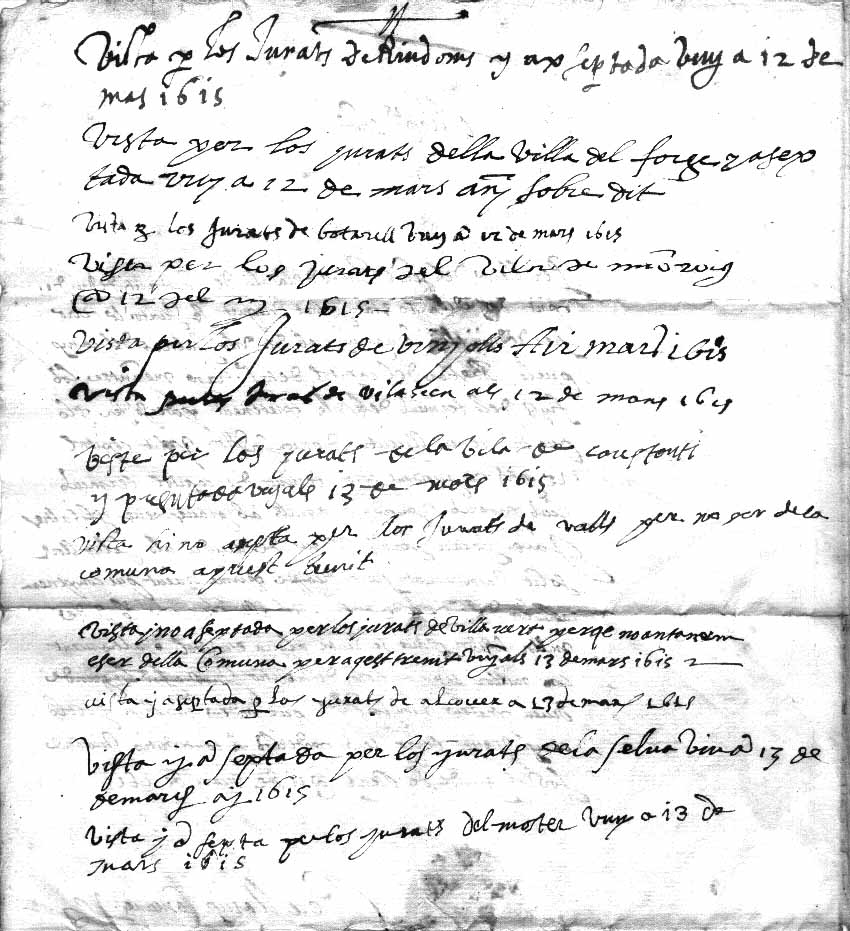 Vista p los Jurats de Riudoms y axseptada vuy a 12 de
mars 1615
Vista per los jurats della villa del forge y asep
tada vuy a 12 de mars añy sobre dit
Vista p los Jurats de botarell vuy a 12 de mars 1615
Vista per los jurats del Vila de
a 12 del m 1615
Vista per los Jurats de vinyolls mars 1615
Vista de vilaseca als 12 de mars 1615
Viste per los jurats de la vila de constonti
y presentada vuy als 13 de mars 1615
Vista hi no asepta per los Jurats de valls per no ser de la
comuna aquest trenit
Vista j no aseptada per los jurats de villa vert perqe no antanem
eser della Comuna per aqest trenit vuy als 13 de mars 1615
vista y aseptada p los jurats de alcover a 13 de mars 1615
Vista y a septada per los jurats dela selva vuy a 13 de
de mars aj 1615
Vista y a septa per los jurats del moster vuy a 13 de
mars 1615